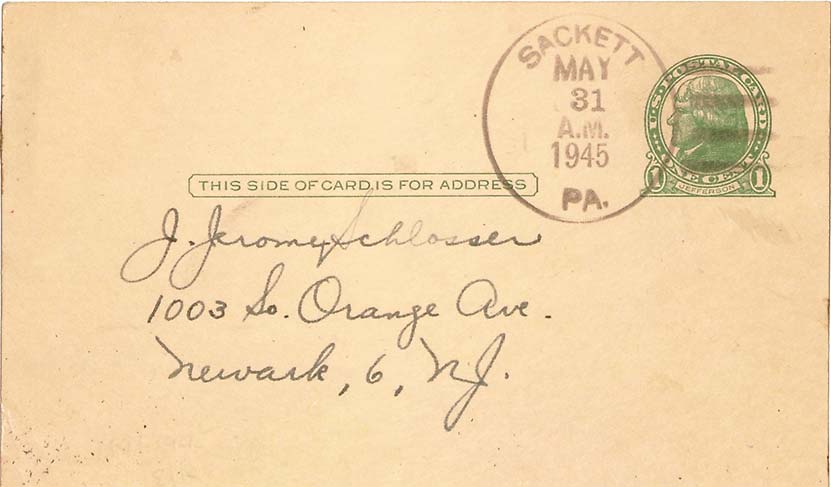 SACKETT
MAY
31
A.M.
1945
PA.
U.S. POSTAL CARD
ONE CENT
1 JEFFERSON 1
THIS SIDE OF CARD IS FOR ADDRESS
J. Jerome Schlosser
1003 So. Orange Ave.
Newark, 6, N.J.